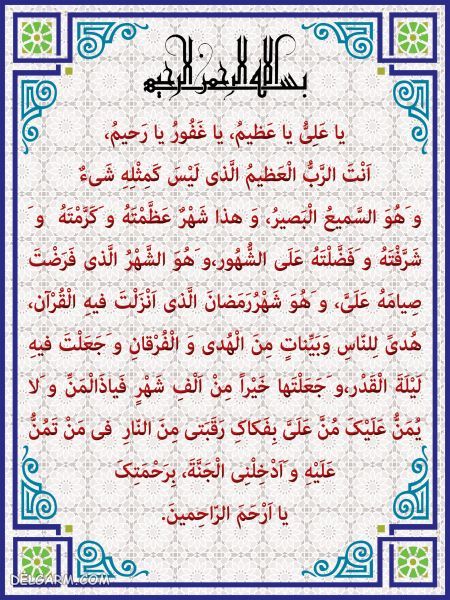 بسم الله الرحمن الرحیم
یا عَلِیُّ یا عَظیمُ، یا غَفُورُ یا رَحیمُ،
اَنْتَ الرَّبُّ الْعَظیمُ الَّذی لَیْسَ کَمِثْلِهِ شَیءٌ
وَهُوَ السَّمیعُ الْبَصیرُ، وَ هذا شَهْرٌ عَظَّمْتَهُ وَکَرَّمْتَهُ وَ
شَرَّفْتَهُ وَفَضَّلْتَهُ عَلَی الشُّهُورِ،وَهُوَ الشَّهْرُ الَّذی فَرَضْتَ
صِیامَهُ عَلَیَّ، وَهُوَ شَهْرُرَمَضانَ الَّذی اَنْزَلْتَ فیهِ الْقُرْآنَ،
هُدیً لِلنّاسِ وَبَیِّناتٍ مِنَ الْهُدی وَ الْفُرْقانِ وَجَعَلْتَ فیهِ
لَیْلَةَ الْقَدْرِ،وَجَعَلْتَها خَیْراً مِنْ اَلْفِ شَهْرٍ فَیاذَالْمَنِّ وَلا
یُمَنُّ عَلَیْکَ مُنَّ عَلَیَّ بِفَکاکِ رَقَبَتی مِنَ النّارِ فی مَنْ تَمُنُّ
عَلَیْهِ وَاَدْخِلْنِی الْجَنَّةَ، بِرَحْمَتِکَ
یا اَرْحَمَ الرّاحِمینَ.
DELGARM.COM